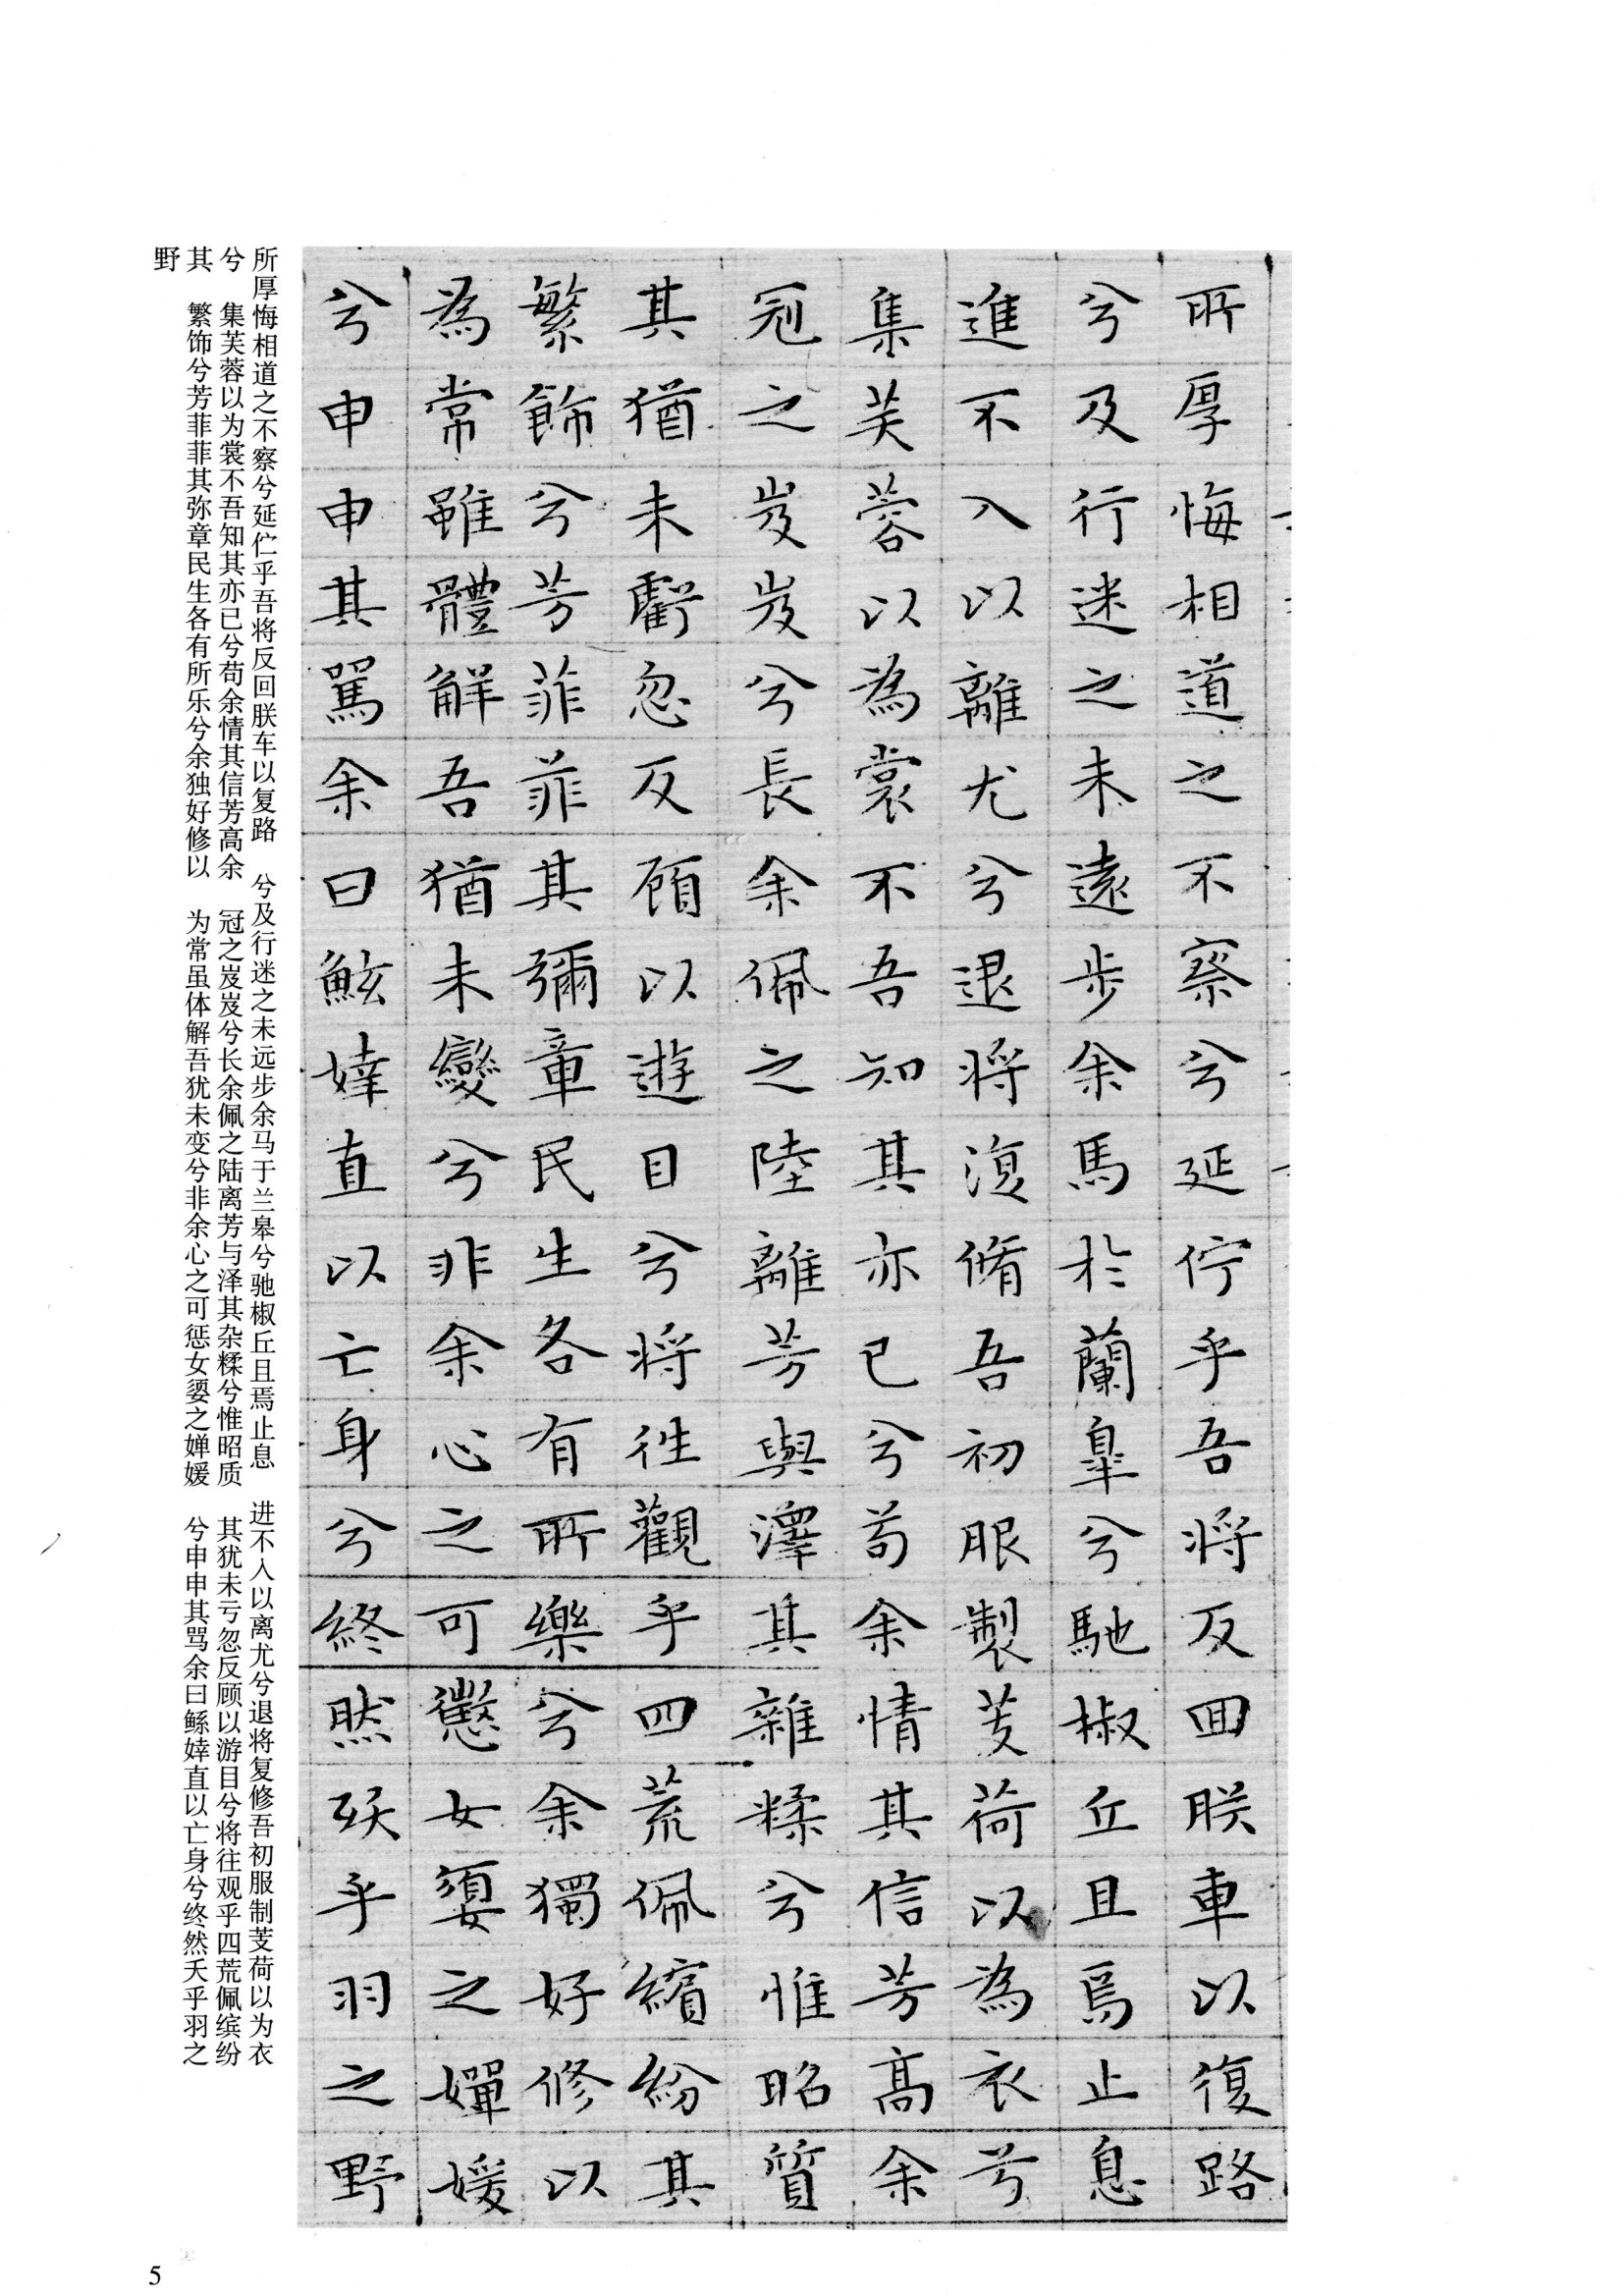 所厚悔相道之不察兮延佇乎吾将反回朕車以復路
兮及行迷之未遠步余馬於蘭皋兮馳椒丘且焉止息
進不入以離尤兮退将復脩吾初服製芰荷以為衣兮
集芙蓉以為裳不吾知其亦已兮苟余情其信芳高余
冠之岌岌兮長余佩之陸離芳與澤其雜糅兮惟昭質
其猶未虧忽反顧以遊目兮将往觀乎四荒佩繽紛其
繁飾兮芳菲菲其彌章民生各有所樂兮余獨好修以
為常雖體解吾猶未變兮非余心之可懲女嬃之嬋媛
兮申申其罵余曰鮌婞直以亡身兮終然殀乎羽之野
所厚悔相道之不察兮延伫乎吾将反回朕车以复路 兮及行迷之未远步余马于兰皋兮驰椒丘且焉止息 进不入以离尤兮退将复修吾初服制芰荷以为衣
兮 集芙蓉以为裳不吾知其亦已兮苟余情其信芳高余 冠之岌岌兮长余佩之陆离芳与泽其杂糅兮惟昭质 其犹未亏忽反顾以游目兮将往观乎四荒佩缤纷
其 繁饰兮芳菲菲其弥章民生各有所乐兮余独好修以 为常虽体解吾犹未变兮非余心之可惩女嬃之婵媛 兮申申其骂余曰鲧婞直以亡身兮终然夭乎羽之
野
5